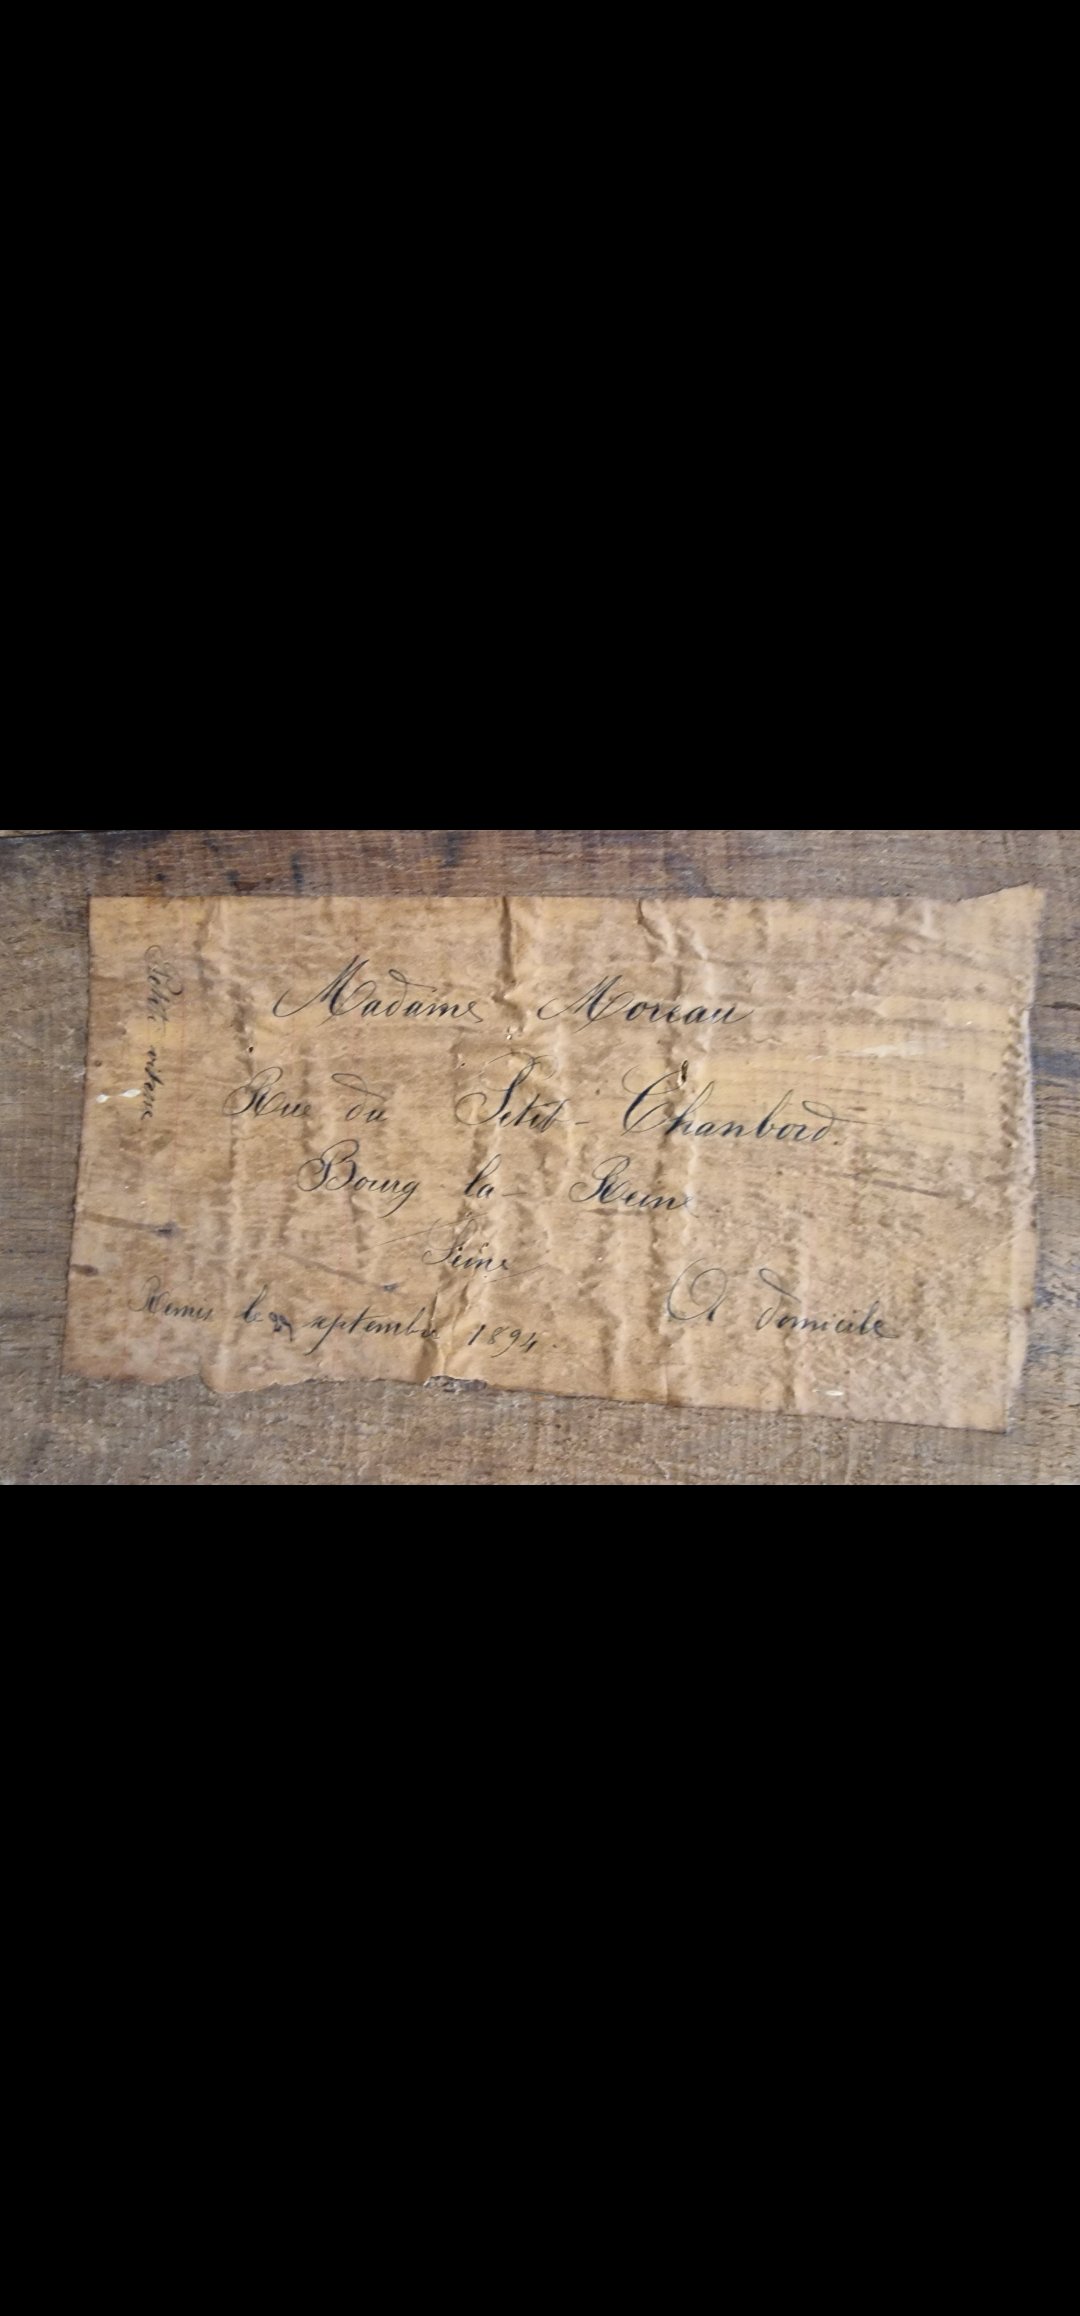 Madame Moreau
Rue du Petit-Chanbord.
Bourg-la-Reine
Seine
A domicile
Remis le septembre 1894.
Petite vitesse